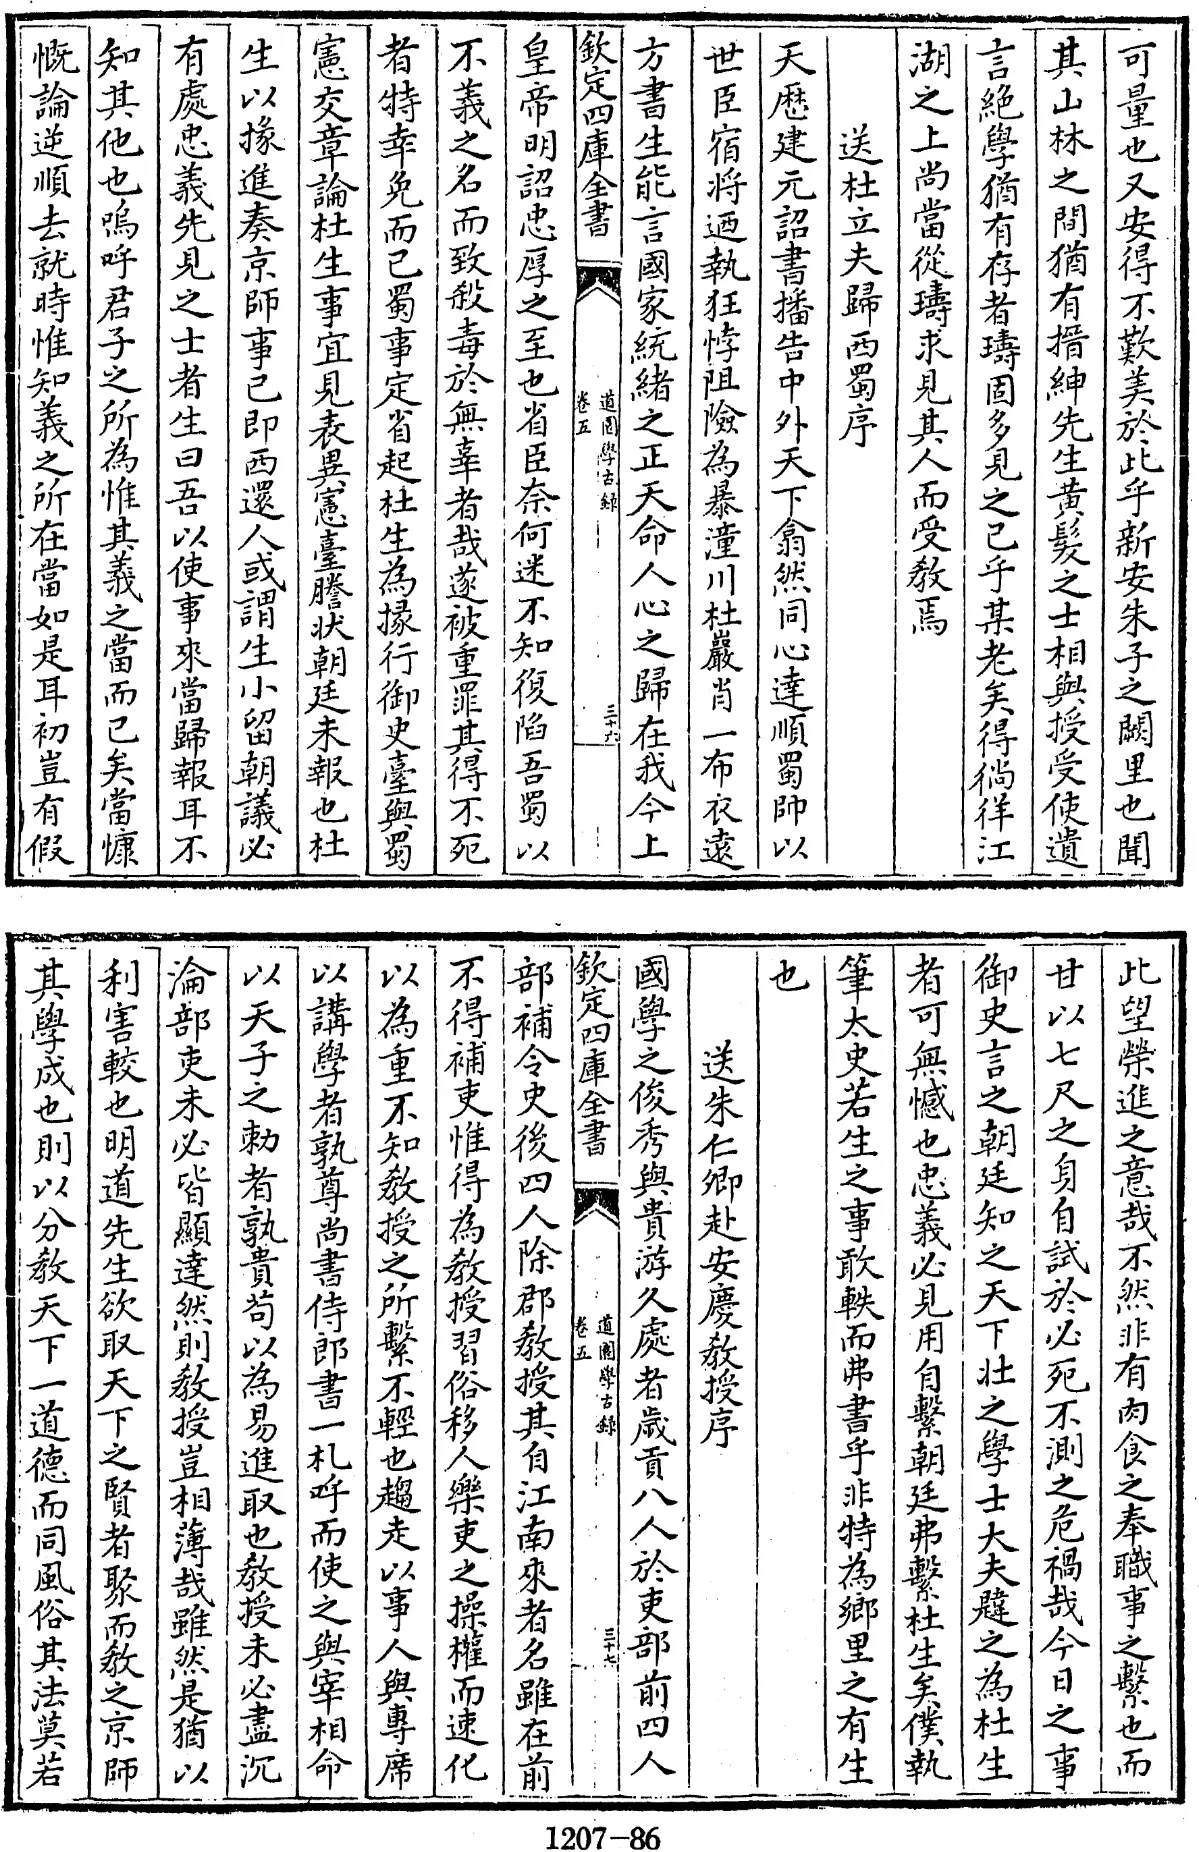 可量也又安得不歎美於此乎新安朱子之闕里也聞
其山林之間猶有搢紳先生黃髮之士相與授受使遺
言絶學猶有存者璹固多見之已乎某老矣得徜徉江
湖之上尚當從璹求見其人而受教焉
送杜立夫歸西蜀序
天歴建元詔書播告中外天下翕然同心達順蜀帥以
世臣宿將迺執狂悖阻險為暴潼川杜巖肖一布衣逺
方書生能言國家統緒之正天命人心之歸在我今上
欽定四庫全書
道園學古録
卷五
三十六
皇帝明詔忠厚之至也省臣奈何迷不知復陷吾蜀以
不義之名而致殺毒於無辜者哉遂被重罪其得不死
者特幸免而已蜀事定省起杜生為掾行御史臺與蜀
憲交章論杜生事宜見表異憲臺謄状朝廷未報也杜
生以掾進奏京師事已即西還人或謂生小留朝議必
有處忠義先見之士者生曰吾以使事來當歸報耳不
知其他也嗚呼君子之所為惟其義之當而已矣當慷
慨論逆順去就時惟知義之所在當如是耳初豈有假
此望榮進之意哉不然非有肉食之奉職事之繫也而
甘以七尺之身自試於必死不測之危禍哉今日之事
御史言之朝廷知之天下壮之學士大夫韙之為杜生
者可無憾也忠義必見用自繫朝廷弗繫杜生矣僕執
筆太史若生之事敢軼而弗書乎非特為鄉里之有生
也
送朱仁卿赴安慶教授序
國學之俊秀與貴游久處者歳貢八人於吏部前四人
欽定四庫全書
道園學古録
卷五
三十七
部補令史後四人除郡教授其自江南來者名雖在前
不得補吏惟得為教授習俗移人樂吏之操權而速化
以為重不知教授之所繫不輕也趨走以事人與專席
以講學者孰尊尚書侍郎書一札呼而使之與宰相命
以天子之勅者孰貴茍以為易進取也教授未必盡沉
淪部吏未必皆顯達然則教授豈相薄哉雖然是猶以
利害較也明道先生欲取天下之賢者聚而教之京師
其學成也則以分教天下一道德而同風俗其法莫若
1207-86